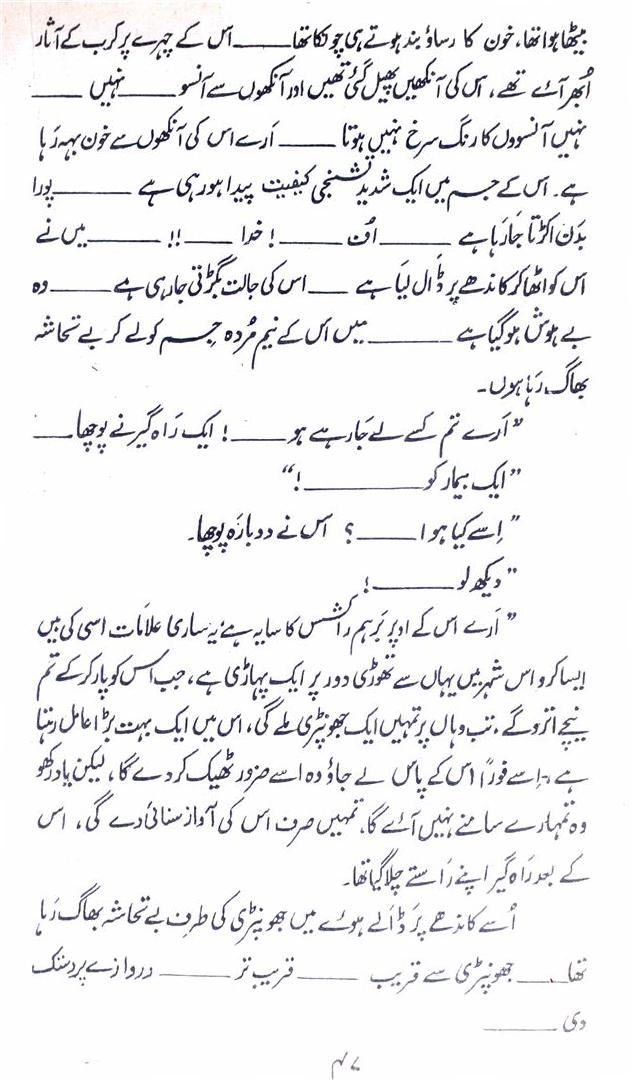 بیٹھا ہوا تھا، خون کا رساؤ بند ہوتے ہی چونکا تھا ــــــ اس کے چہرے پر کرب کے آثار
اُبھر آئے تھے، اس کی آنکھیں پھیل گئی تھیں اور آنکھوں سے آنسو ــــــ نہیں ــــــ
نہیں آنسوؤں کا رنگ سرخ نہیں ہوتا ــــــ اَرے اس کی آنکھوں سے خون بہہ رَہا
ہے۔ اس کے جسم میں ایک شدید تشنجی کیفیت پیدا ہو رہی ہے ــــــ پورا
بدَن اکڑتا جَا رَہا ہے ــــــ اُف ــــــ! خدا ــــــ!! ــــــ میں نے
اس کو اٹھا کر کاندھے پر ڈَال لیَا ہے ــــــ اس کی حالت بگڑتی جا رہی ہے ــــــ وہ
بے ہوش ہو گیا ہے ــــــ میں اس کے نیم مُردہ جسم کو لے کر بے تحاشہ
بھاگ رَہا ہوں۔
”اَرے تم کسے لے جَا رہے ہو ــــــ! ایک رَاہ گیر نے پوچھا ــــــ
”ایک بیمار کو ــــــ!“
”اِسے کیا ہوا ــــــ؟ اس نے دوبارَہ پوچھا۔
”دیکھ لو ــــــ!
”اَرے اس کے اوپر بَرہم راکشس کا سایہ ہے، یہ ساری علامَات اسی کی ہیں
ایسا کرو اس شہر میں یہاں سے تھوڑی دور پر ایک پہاڑی ہے، جب اس کو پار کر کے تم
نیچے اترو گے۔ تب وہاں پر تمہیں ایک جھونپڑی ملے گی، اس میں ایک بہت بڑا عامل رہتا
ہے، اِسے فوراً اس کے پاس لے جاؤ وہ اسے ضرور ٹھیک کر دے گا، لیکن یاد رکھو
وہ تمہارے سامنے نہیں آئے گا، تمہیں صرف اس کی آواز سنائی دے گی، اس
کے بعد رَاہ گیر اپنے رَاستے چلا گیا تھا۔
اُسے کاندھے پَر ڈَالے ہوئے میں جھونپڑی کی طرف بے تحاشہ بھاگ رَہا
تھا ــــــ جھونپڑی سے قریب ــــــ قریب تر ــــــ دروازے پر دستک
دی ــــــ
۴۷